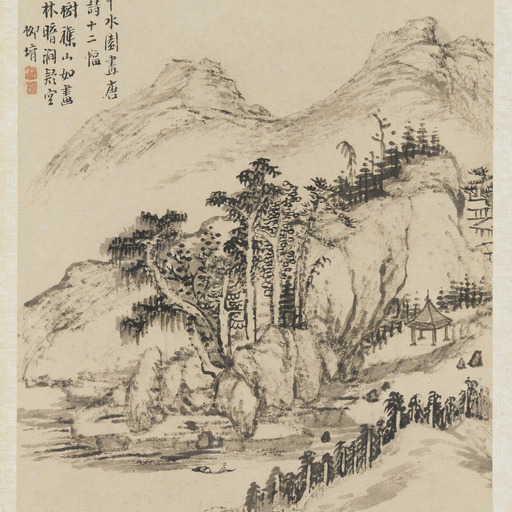 水園畫唐
詩十二幅
樹雜山如畫
林暗澗疑空
柳堉